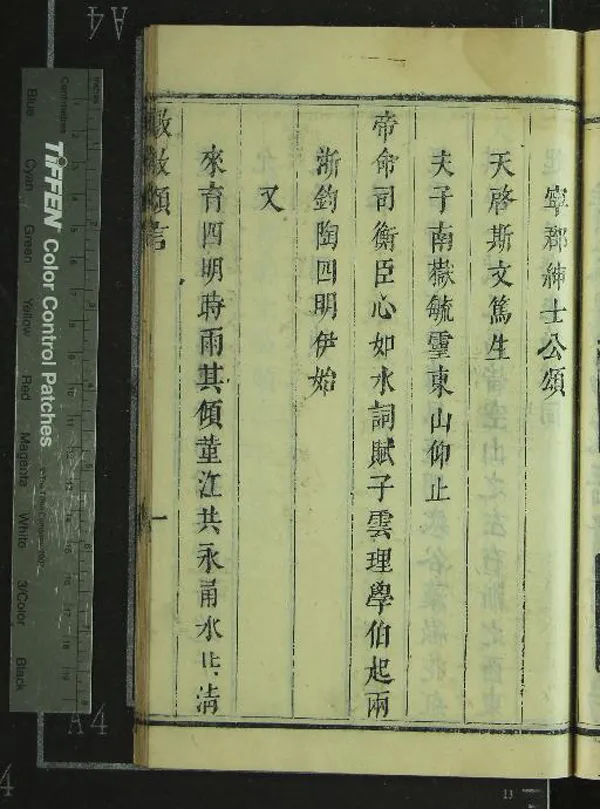 寧郡紳士公頌
天啓斯文篤生
夫子南嶽毓靈東山仰止
帝命司衡臣心如水詞賦子雲理學伯起兩
浙鈞陶四明伊始
又
來育四明時雨其傾董江共永甬水比清
頌言
一
Inches
Centimetres
TIFFEN Color Control Patches
Blue
Cyan
Green
Yellow
Red
Magenta
White
3/Color
Black
A4
A4
4
13